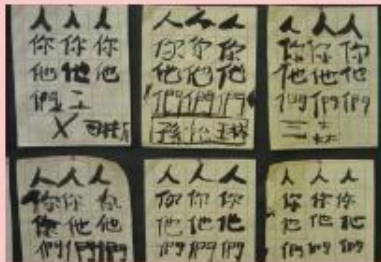 人人人
你你你
他他他
們
人人人
你你你
他他他
們們們
人人人
你你你
他他他
們們們
三
人人人
你你你
你他他
們們們
人人人
你你你
他他他
們們們
人人人
你你你
他他他
們們們